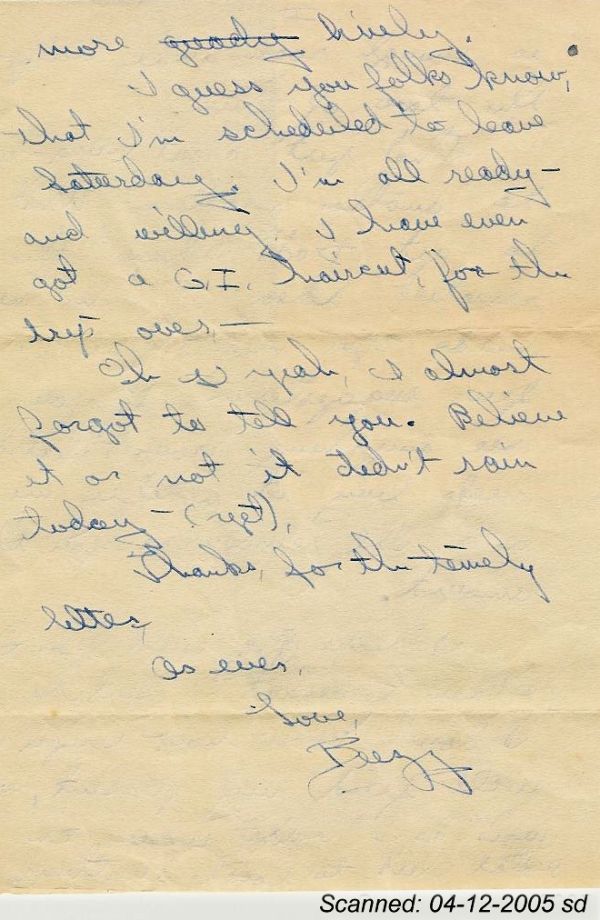 more goodey lively.
I guess you folks know,
that I'm scheduled to leave
Saturday. I'm all ready —
and willing, I have even
got a G.I. haircut, for the
trip over. —
Oh yeah, I almost
forgot to tell you. Believe
it or not it didn't rain
today — (yet).
Thanks, for the timely
letter,
As ever,
Love,
Scanned: 04-12-2005 sd